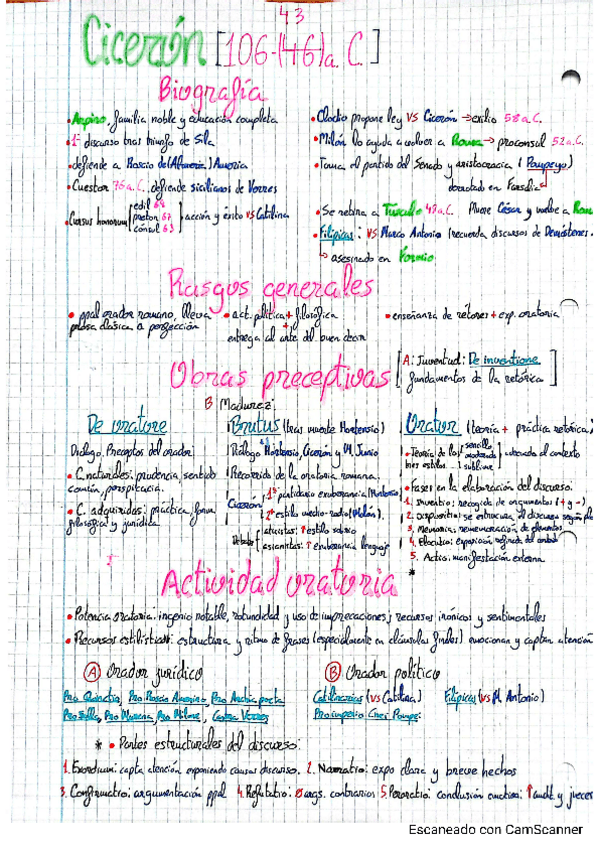 43
Cicerón [106-(46)a.C.]
Biografía
• Arpino, familia noble y educación completa
• 1er discurso tras triunfo de Sila
• defiende a Roscio de (Almeria) Ameria
• Cuestor 76 a.C., defiende sicilianos de Verres
• Cursus honorum
edil 69
pretor 67
cónsul 63
acción y éxito vs Catilina
• Clodio propone ley VS Cicerón → exilio 58 a.C.
• Milón lo ayuda a volver a Roma → proconsul 52 a.C.
• Toma el partido del Senado y aristocracia (Pompeyo)
derrotado en Farsalia
• Se retira a Túsculo 47 a.C. Muere César y vuelve a Roma
• Filípicas: VS Marco Antonio (recuerda discursos de Demóstenes.
↳ asesinado en Formio
Rasgos generales
• ppal orador romano, lleva
prosa clásica a perfección
• act. política + filosófica
+
entrega al arte del buen decir
• enseñanza de rétores + exp. oratoria
Obras preceptivas
[A: Juventud: De inventione
fundamentos de la retórica]
B Madurez:
De oratore
Diálogo, Preceptos del orador
• C. naturales: prudencia, sentido
común, perspicacia.
• C. adquiridas: práctica, form
filosófica y jurídica
Brutus (tras muerte Hortensio)
Diálogo Hortensio, Cicerón y M. Junio
Recorrido de la oratoria romana.
Cicerón
1º partidario exuberancia (Hortensio)
2º estilo medio-rodio (Molón).
Debate
aticistas: ↑ estilo sobrio
asianistas: ↑ exuberancia lenguaje
Orator (teoría + práctica retórica)
• Teoría de los
tres estilos
sencillo
moderado
sublime
adecuada al contexto
• Fases en la elaboración del discurso:
1. Inventio: recogida de argumentos (+ y -)
2. Dispositio: se estructura el discurso según
3. Memoria: rememoración de elementos
4. Elocutio: exposición refinada del
5. Actio: manifestación externa
*
Actividad oratoria
• Potencia oratoria: ingenio notable, rotundidad y uso de imprecaciones y recursos irónicos y sentimentales
• Recursos estilísticos: estructura y ritmo de frases (especialmente en cláusulas finales) emocionan y captan atención
A Orador jurídico
Pro Quinctio, Pro Roscio Amerino, Pro Archia poeta
Pro Sulla, Pro Murena, Pro Milone, Contra Verres
B Orador político
Catilinarias (vs Catilina) Filípicas (vs M. Antonio)
Pro imperio Cnei Pompei
* • Partes estructurales del discurso:
1. Exordium: capta atención exponiendo causas discurso. 2. Narratio: expo clara y breve hechos
3. Confirmatio: argumentación ppal 4. Refutatio: Ø args. contrarios 5. Peroratio: conclusión emotiva: ↑ audit. y jueces
Escaneado con CamScanner